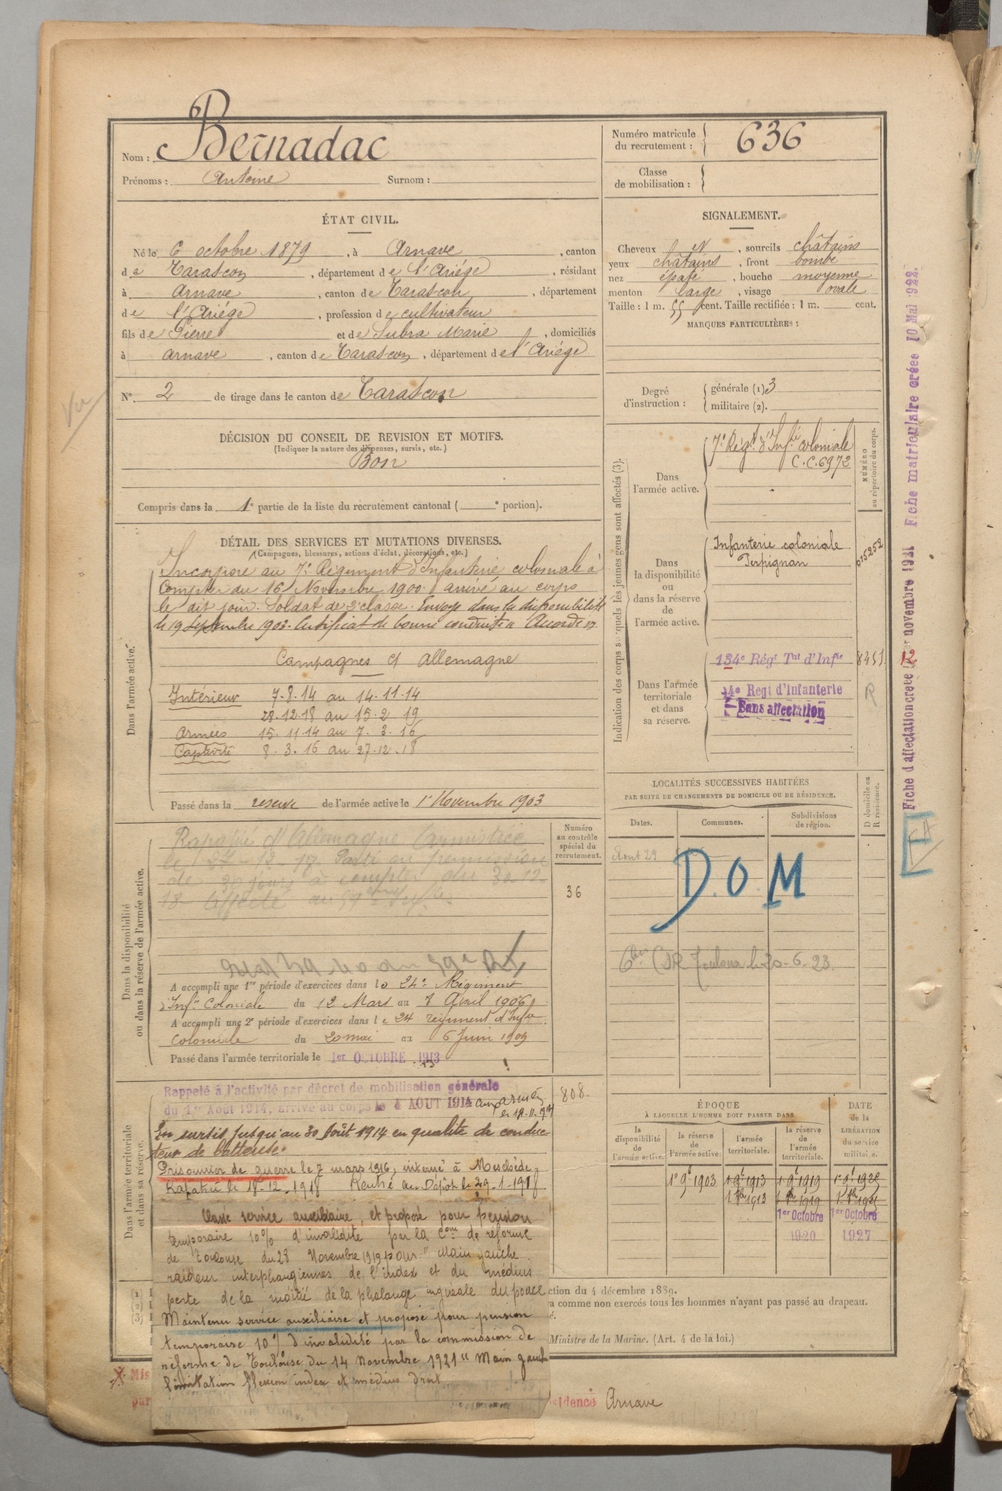 Nom : Bernadac
Prénoms : Antoine Surnom :
Numéro matricule du recrutement : 636
Classe de mobilisation :
ÉTAT CIVIL.
Né le 6 octobre 1879, à Arnave, canton
de Tarascon, département de l'Ariège, résidant
à Arnave, canton de Tarascon, département
de l'Ariège, profession de cultivateur
fils de Pierre et de Subra Marie, domiciliés
à Arnave, canton de Tarascon, département de l'Ariège
N° 2 de tirage dans le canton de Tarascon
Vu
DÉCISION DU CONSEIL DE REVISION ET MOTIFS.
(Indiquer la nature des dispenses, sursis, etc.)
Bon
Compris dans la 1e partie de la liste du recrutement cantonal ( e portion).
SIGNALEMENT.
Cheveux et, sourcils châtains
yeux châtains, front bombé
nez épaté, bouche moyenne
menton large, visage ovale
Taille : 1 m. 55 cent. Taille rectifiée : 1 m. cent.
MARQUES PARTICULIÈRES :
Degré d'instruction : générale (1) 3
militaire (2).
DÉTAIL DES SERVICES ET MUTATIONS DIVERSES.
(Campagnes, blessures, actions d'éclat, décorations, etc.)
Dans l'armée active.
Incorporé au 7e Régiment d'Infanterie coloniale à
compter du 16 Novembre 1900. arrivé au corps
le dit jour. Soldat de 2e classe. Envoyé dans la disponibilité
le 19 Septembre 1903. Certificat de bonne conduite Accordé
Campagnes Allemagne
Intérieur 7-8-14 au 14-11-14
28-12-18 au 15-2-19
Armées 15-11-14 au 7-3-16
Captivité 8-3-16 au 27-12-18
Passé dans la réserve de l'armée active le 1er Novembre 1903
Indication des corps auxquels les jeunes gens sont affectés (3).
NUMÉRO au répertoire du corps.
Dans l'armée active.
7e Régt d'Infie coloniale
C.C. 6972
Dans la disponibilité ou dans la réserve de l'armée active.
Infanterie coloniale
Perpignan
Dans l'armée territoriale et dans sa réserve.
134e Régt Tal d'Infie 8451
R
Regt d'Infanterie
Sans affectation
Fiche d'affectation créée 12 novembre 1921 Fiche matriculaire créée 10 Mai 1922.
LOCALITÉS SUCCESSIVES HABITÉES
PAR SUITE DE CHANGEMENTS DE DOMICILE OU DE RÉSIDENCE.
Dates. Communes. Subdivisions de région. D domicile ou R résidence.
D.O.M
CSR Toulouse le 20-6-23
Dans la disponibilité ou dans la réserve de l'armée active.
Numéro au contrôle spécial du recrutement.
36
Rapatrié d'Allemagne
A accompli une 1re période d'exercices dans le 24e Régiment
Infie Coloniale du 12 Mars au 7 Avril 1906
A accompli une 2e période d'exercices dans le 24 régiment d'Infie
Coloniale du 20 mai au 6 Juin 1909
Passé dans l'armée territoriale le 1er OCTOBRE 1913
Dans l'armée territoriale et dans sa réserve.
808.
Rappelé à l'activité par décret de mobilisation générale
du 1er Août 1914, arrivé au corps le 4 AOUT 1914 aux armées
En sursis jusqu'au 30 Août 1914 en qualité de conducteur de batteuse.
Prisonnier de guerre le 7 mars 1916, interné à Meschède,
Rapatrié le 18-12-1918 Rentré au Dépôt le 29-1-1918
Classé service auxiliaire, et proposé pour pension
temporaire 10% d'invalidité par la Com de réforme
de Toulouse du 28 Novembre 1919 pour "Main gauche
raideur interphangiennes de l'index et du médius
perte de la moitié de la phalange inguéale du pouce
Maintenu service auxiliaire et proposé pour pension
temporaire 10% d'invalidité par la commission de
réforme de Toulouse du 14 Novembre 1921 "Main gauche
limitation flexion index et médius droit.
ÉPOQUE
À LAQUELLE L'HOMME DOIT PASSER DANS
DATE de la LIBÉRATION du service militaire.
la disponibilité de l'armée active. la réserve de l'armée active. l'armée territoriale. la réserve de l'armée territoriale.
1er 8bre 1903 1er 8bre 1913 1er 8bre 1919
1913 1919
1er Octobre 1920 1er Octobre 1927
ction du 4 décembre 1889.
a comme non exercés tous les hommes n'ayant pas passé au drapeau.
é.
Ministre de la Marine. (Art. 4 de la loi.)
idence Arnave